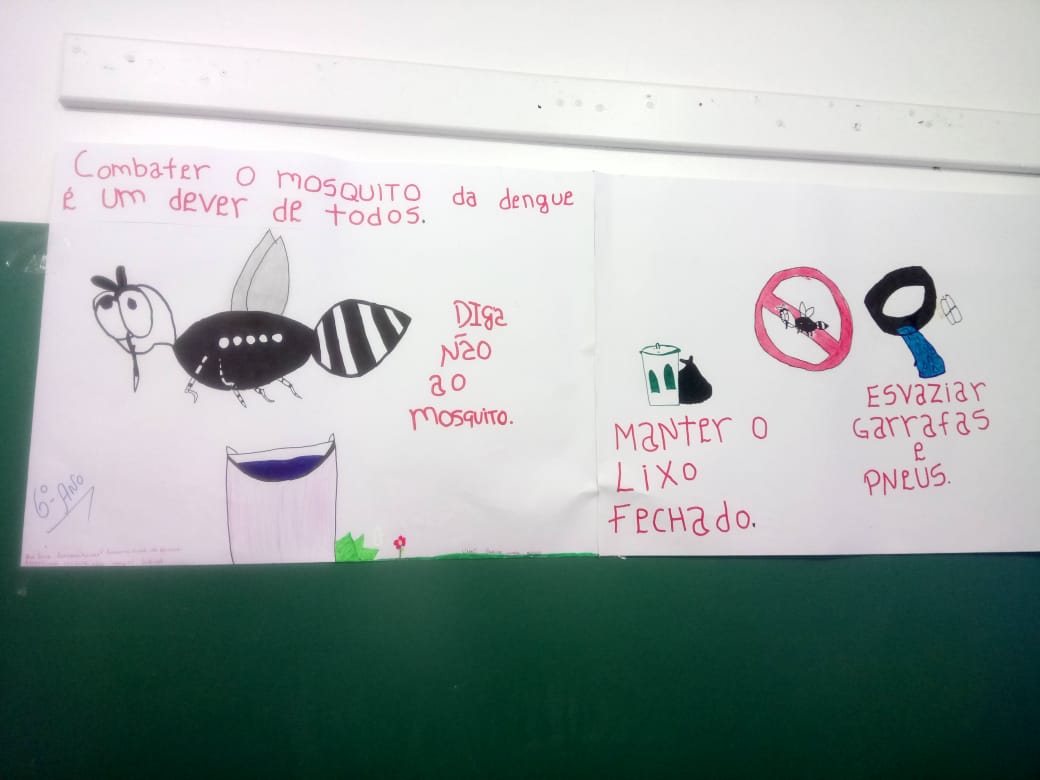 Combater o mosquito da dengue
é um dever de todos.
Diga
não
ao
mosquito.
6º Ano
Manter o
lixo
fechado.
Esvaziar
garrafas
e
pneus.